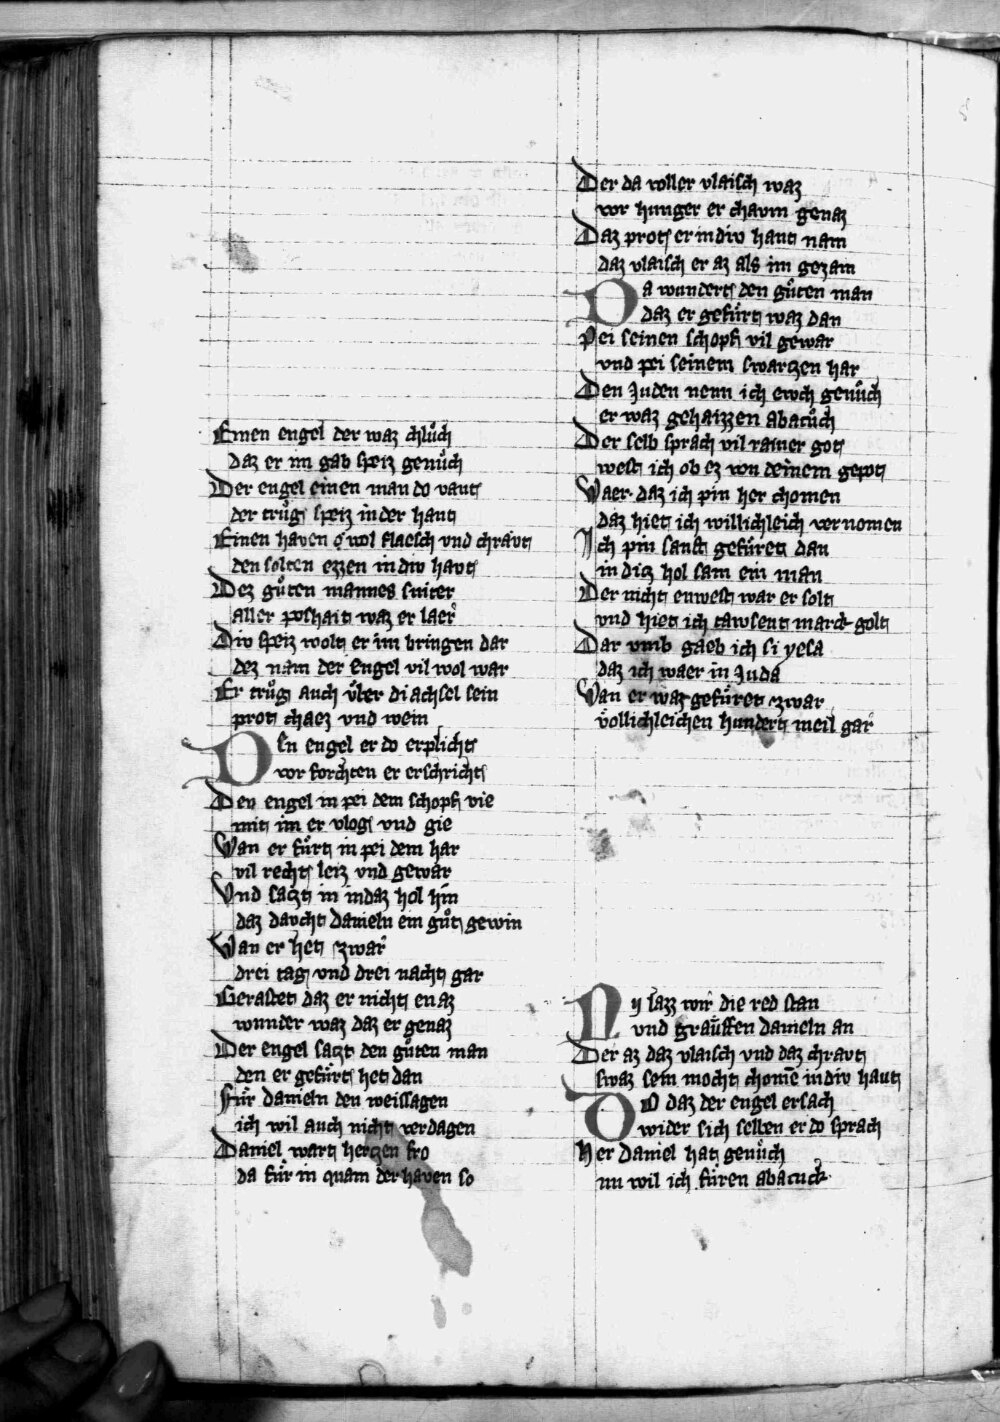 Einen engel der waz chlůch
daz er im gab speiz genůch
Der engel einen man do vant
der trůg speiz in der hant
Einen haven vol flaesch vnd chravt
den solten ezzen in div havt
Dez gůten mannes sniter
aller poshait waz er laer
Div speiz wolt er im bringen dar
dez nam der Engel vil wol war
Er trůg auch vͤber di achsel sein
prot chaez vnd wein
Den engel er do erplicht
vor forchten er erschricht
Der engel in pei dem schopf vie
mit im er vlog vnd gie
Wan er fůrt in pei dem har
vil recht leiz vnd gewar
Vnd satzt in in daz hol hin
daz davcht danieln ein gůt gewin
Wan er het zwar
drei tag vnd drei nacht gar
Gerastet daz er nicht enaz
wunder waz daz er genaz
Der engel satzt den gůten man
den er gefůrt het dan
Fůr danieln den weissagen
ich wil auch nicht verdagen
Daniel wart hertzen fro
da fůr in quam der haven so
Der da voller vlaisch waz
vor hunger er chavm genaz
Daz prot er in div hant nam
daz vlaisch er az als im gezam
Da wundert den gůten man
daz er gefůrt waz dan
Pei seinen schopf vil gewar
vnd pei seinem swartzen har
Den Juden nenn ich ewch genůch
er waz gehaizzen abacůch
Der selb sprach vil rainer got
west ich ob ez von deinem gepot
Waer daz ich pin her chomen
daz hiet ich willichleich vernomen
Ich pin sanft gefůret dan
in ditz hol sam ein man
Der nicht enwest war er solt
vnd hiet ich tawsent marck golt
Dar vmb gaeb ich si yesa
daz ich waer in Juda
Wan er waz gefůret zwar
vollichleichen hundert meil gar
Ny lazz wir die red stan
vnd grauffen danieln an
Der az daz vlaisch vnd daz chravt
swaz sein mocht chomē in div havt
Do daz der engel ersach
wider sich selben er do sprach
Her daniel hat genůch
nu wil ich fůren abacuck